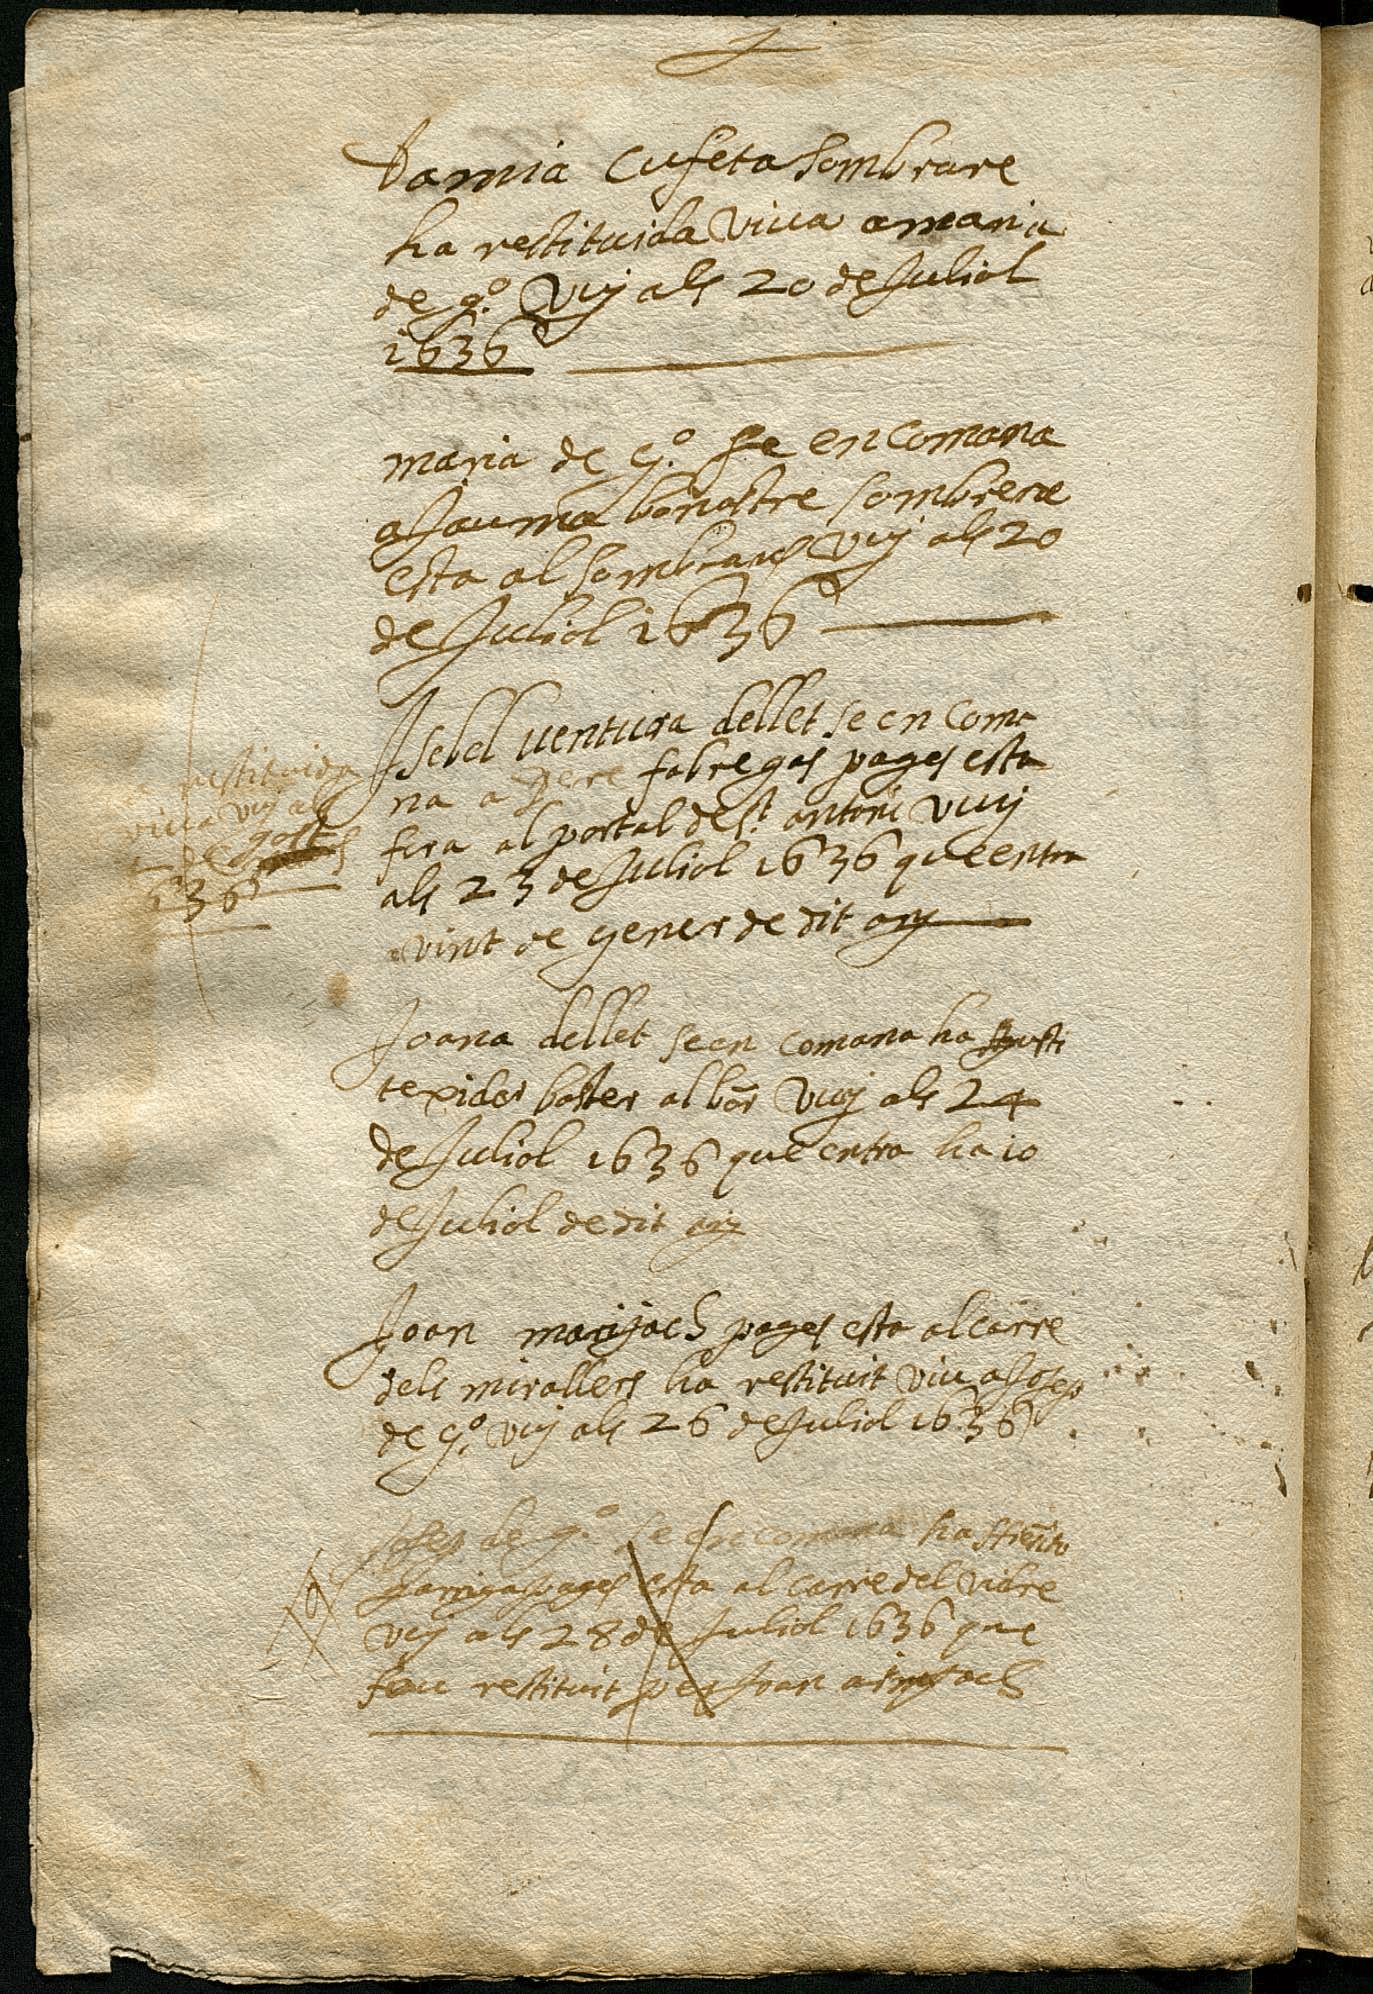 Damia Cufeta sombrare
ha restituida viva a maria
de g.º vuy als 20 de Juliol
1636
maria de g.º se encomana
a Jauma bonastre sombrere
esta al sombraues vuy als 20
de Juliol 1636
Isebel ventura dellet se en coma
na a Pere fabregas pages esta
fora al portal de st. antoni vuy
als 23 de Juliol 1636 que entra
a vint de gener de dit any
restituida
viva vuy als
de gost
1636
Joana dellet se en comana ha
texidor baster al born vuy als 24
de Juliol 1636 que entra ha 10
de Juliol de dit any
Joan pages esta al carre
dels mirallers ha restituit viu a Josep
de g.º vuy als 26 de Juliol 1636
Josep de g.º se encomana ha
garriga pages esta al carre del vidre
vuy als 28 de Juliol 1636 que
fou restituit per Joan